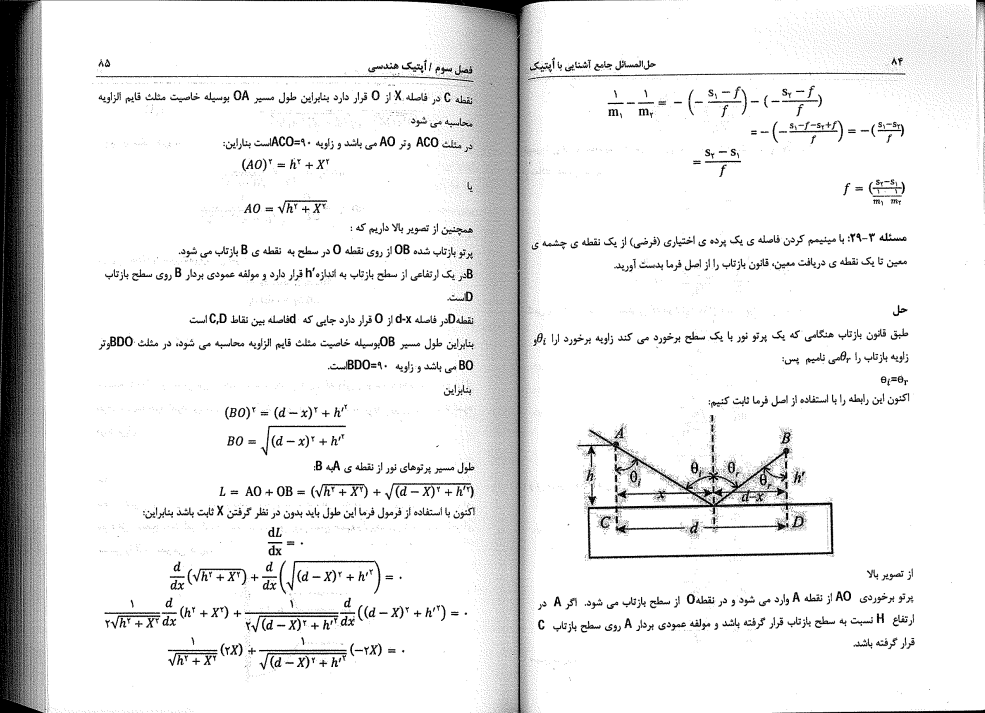 ۸۴
حل‌المسائل جامع آشنایی با اُپتیک
۱/m۱ − ۱/m۲ = −(−(s۱−f)/f) − (−(s۲−f)/f)
= −(−(s۱−f−s۲+f)/f) = −((s۱−s۲)/f)
= (s۲ − s۱)/f
f = ((s۲−s۱)/(۱/m۱ ۱/m۲))
مسئله ۳-۲۹: با مینیمم کردن فاصله ی یک پرده ی اختیاری (فرضی) از یک نقطه ی چشمه ی
معین تا یک نقطه ی دریافت معین، قانون بازتاب را از اصل فرما بدست آورید.
حل
طبق قانون بازتاب هنگامی که یک پرتو نور با یک سطح برخورد می کند زاویه برخورد ارا θi و
زاویه بازتاب را θr می نامیم پس:
θi=θr
اکنون این رابطه را با استفاده از اصل فرما ثابت کنیم:
A
B
h
θi
θi
θr
θr
h′
x
d−x
C
d
D
از تصویر بالا
پرتو برخوردی AO از نقطه A وارد می شود و در نقطهO از سطح بازتاب می شود. اگر A در
ارتفاع H نسبت به سطح بازتاب قرار گرفته باشد و مولفه عمودی بردار A روی سطح بازتاب C
قرار گرفته باشد.
فصل سوم / اُپتیک هندسی
۸۵
نقطه C در فاصله X از O قرار دارد بنابراین طول مسیر OA بوسیله خاصیت مثلث قایم الزاویه
محاسبه می شود
در مثلث ACO وتر AO می باشد و زاویه ACO=۹۰است بناراین:
(AO)۲ = h۲ + X۲
یا
AO = √(h۲ + X۲)
همچنین از تصویر بالا داریم که :
پرتو بازتاب شده OB از روی نقطه O در سطح به نقطه ی B بازتاب می شود.
Bدر یک ارتفاعی از سطح بازتاب به اندازهh′ قرار دارد و مولفه عمودی بردار B روی سطح بازتاب
Dاست.
نقطهDدر فاصله d-x از O قرار دارد جایی که dفاصله بین نقاط C,D است
بنابراین طول مسیر OBبوسیله خاصیت مثلث قایم الزاویه محاسبه می شود، در مثلث BDOوتر
BO می باشد و زاویه BDO=۹۰است.
بنابراین
(BO)۲ = (d − x)۲ + h′۲
BO = √((d − x)۲ + h′۲)
طول مسیر پرتوهای نور از نقطه ی Aبه B:
L = AO + OB = (√(h۲ + X۲) + √((d − X)۲ + h′۲)
اکنون با استفاده از فرمول فرما این طول باید بدون در نظر گرفتن X ثابت باشد بنابراین:
dL/dx = ۰
d/dx (√(h۲ + X۲)) + d/dx (√((d − X)۲ + h′۲)) = ۰
۱/(۲√(h۲ + X۲)) d/dx (h۲ + X۲) + ۱/(۲√((d − X)۲ + h′۲)) d/dx ((d − X)۲ + h′۲) = ۰
۱/√(h۲ + X۲) (۲X) + ۱/√((d − X)۲ + h′۲) (−۲X) = ۰